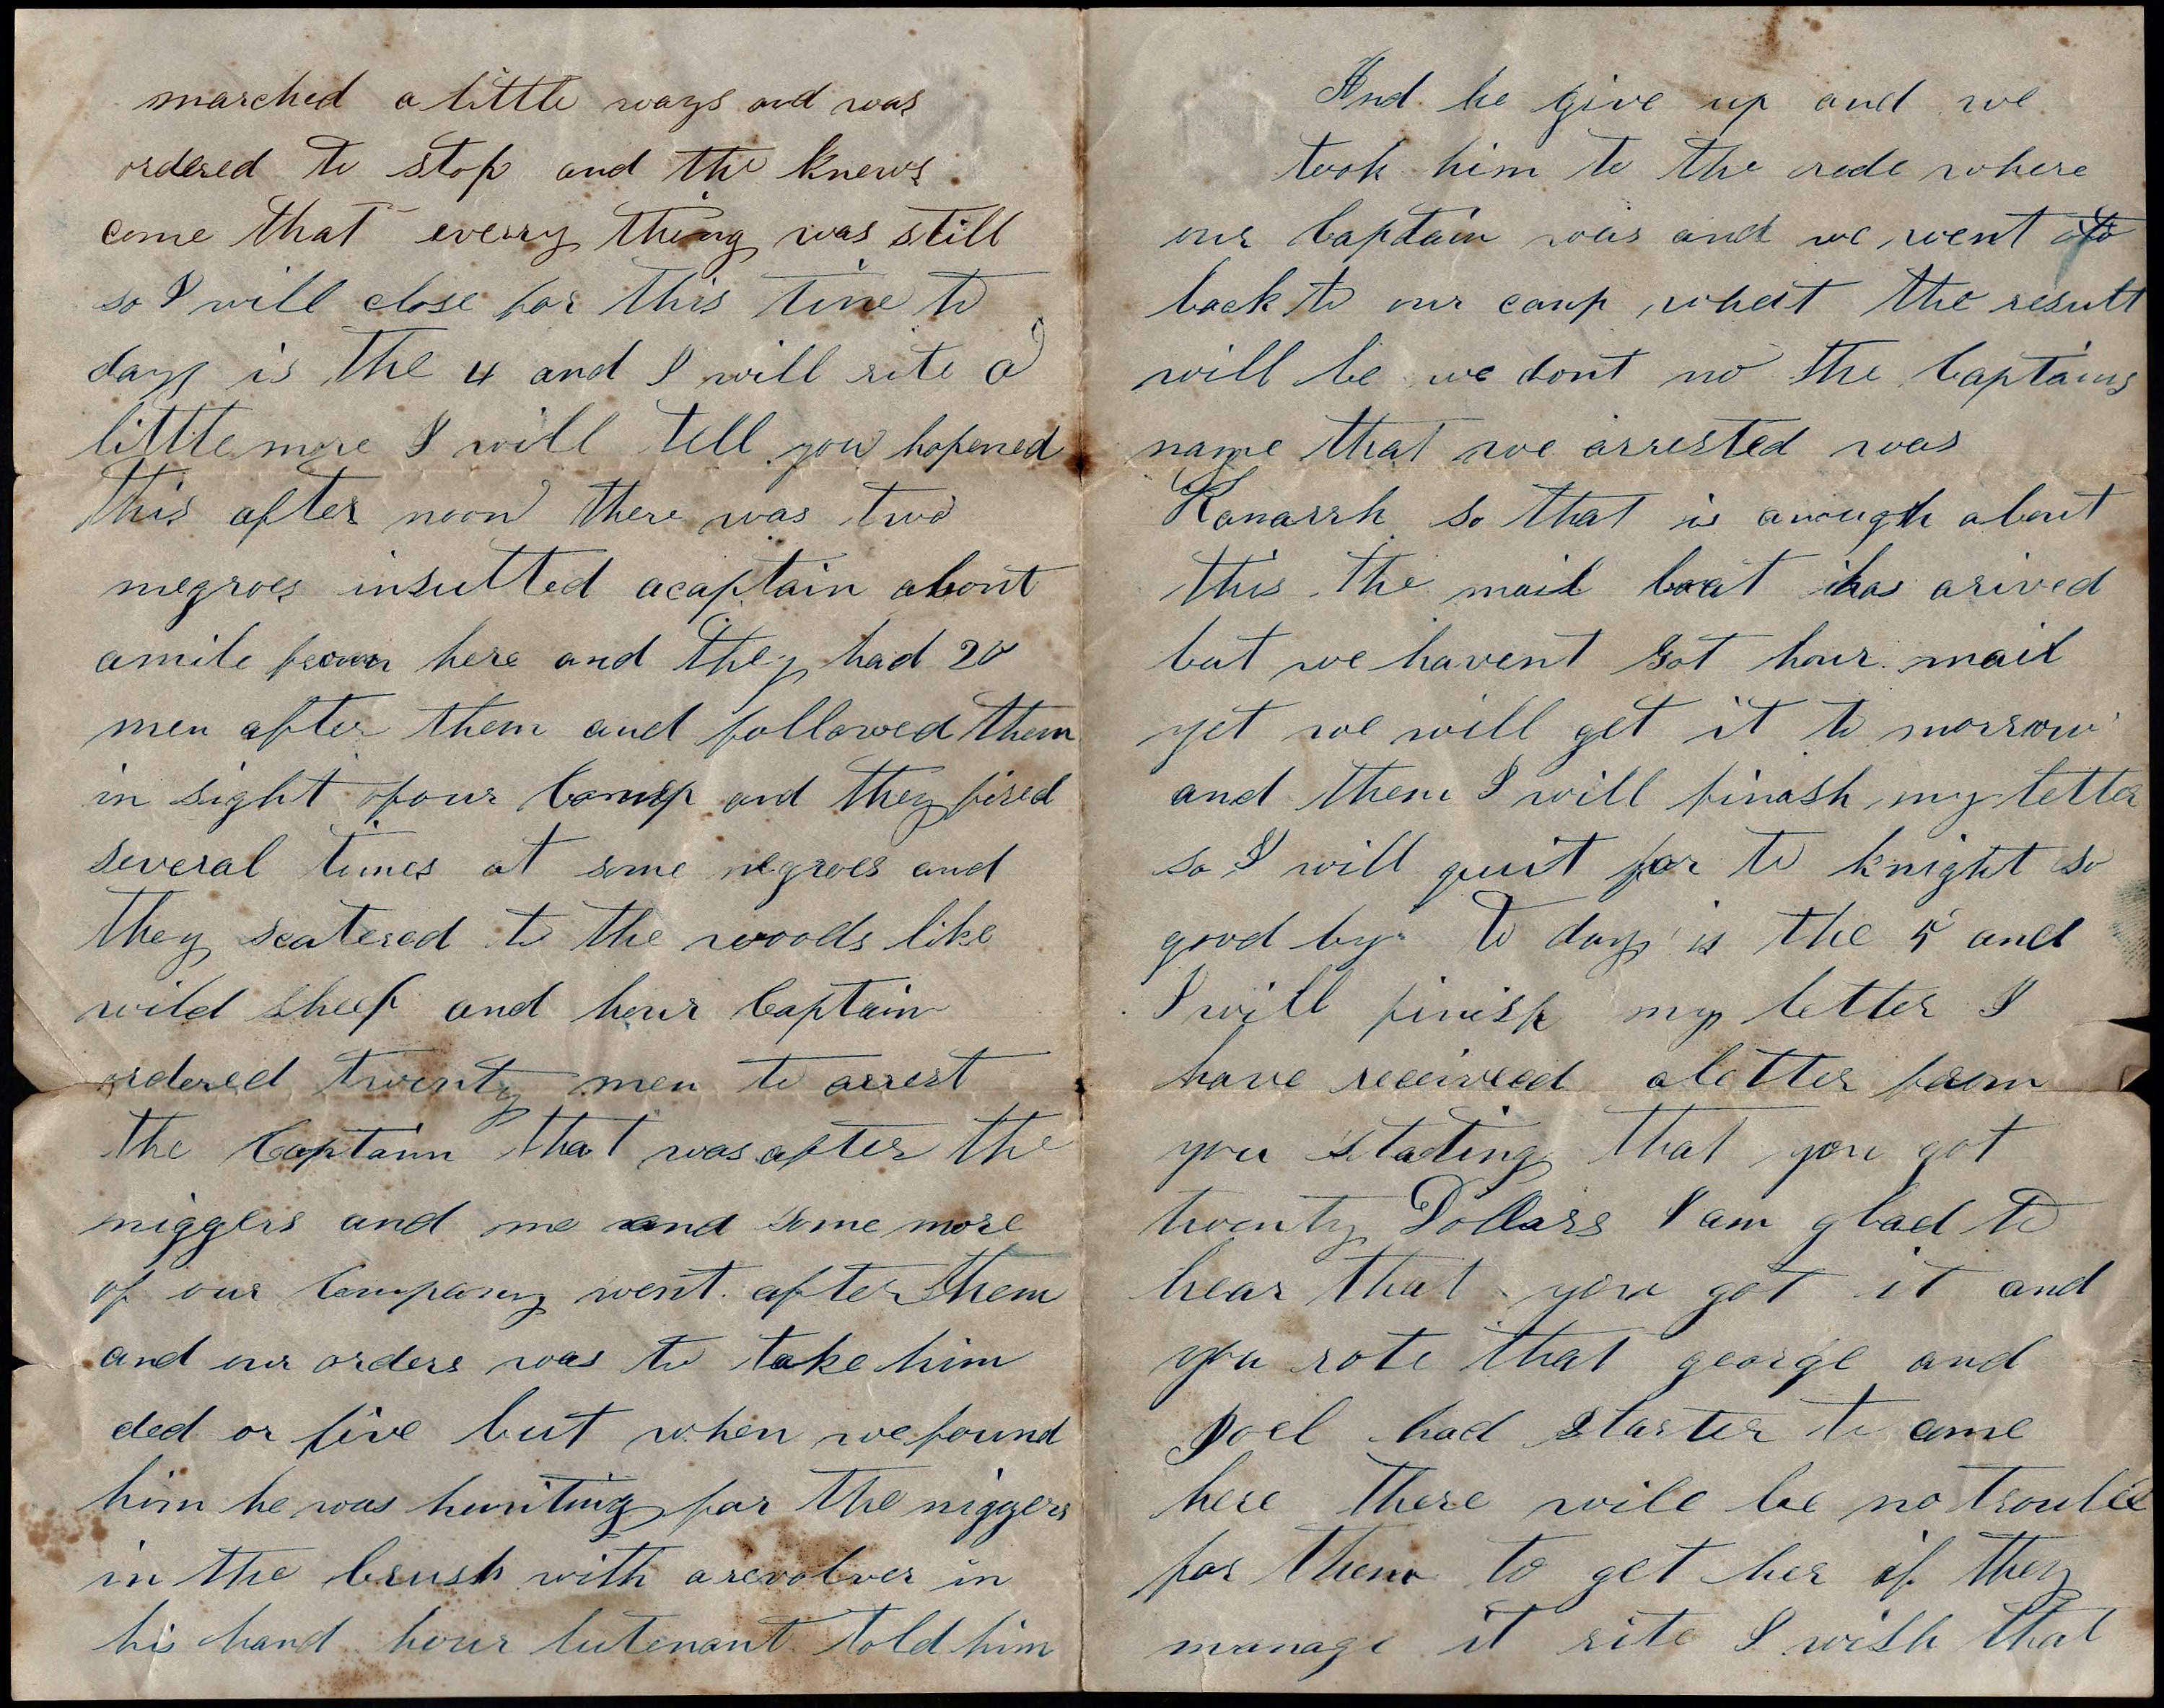 marched a little ways and was
ordered to stop and the knews
come that evearry thing was still
so I will close for this time to
day is the 4 and I will rite a
little more I will tell you hapened
this after noon there was two
negroes insulted acaptain about
amile from here and they had 20
men after them and followed them
in sight of our Camp and they fired
several times at some negroes and
they scatered to the woods like
wild sheep and hour Captain
ordered twenty men to arrest
the Captain that was after the
niggers and me and some more
of our Company went after them
and our orders was to take him
ded or live but when we found
him he was hunting for the niggers
in the brush with a revolver in
his hand hour lutenant told him
And he give up and we
took him to the rode where
our Captain was and we went
back to our camp what the result
will be we dont no the Captains
name that we arrested was
Kanarrh so that is anough about
this the mail boat has arived
but we havent got hour mail
yet we will get it to morrow
and then I will finash my letter
so I will quit for to knight so
good by to day is the 5 and
I will finish my letter I
have received aletter from
you stating that you got
twenty Dollars I am glad to
hear that you got it and
you rote that george and
Joel had starter to come
here there wile be no trouble
for them to get her if they
manage it rite I wish that